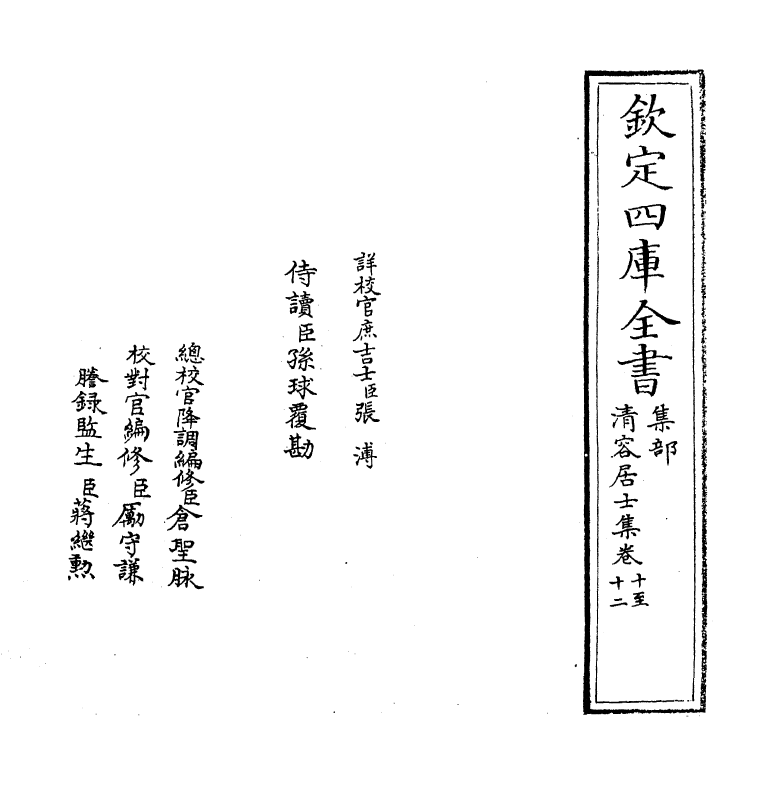 欽定四庫全書
集部
清容居士集卷
十至
十二
詳校官庶吉士臣張溥
侍讀臣孫球覆勘
總校官降調編修臣倉聖脉
校對官編修臣勵守謙
謄錄監生臣蔣繼勲